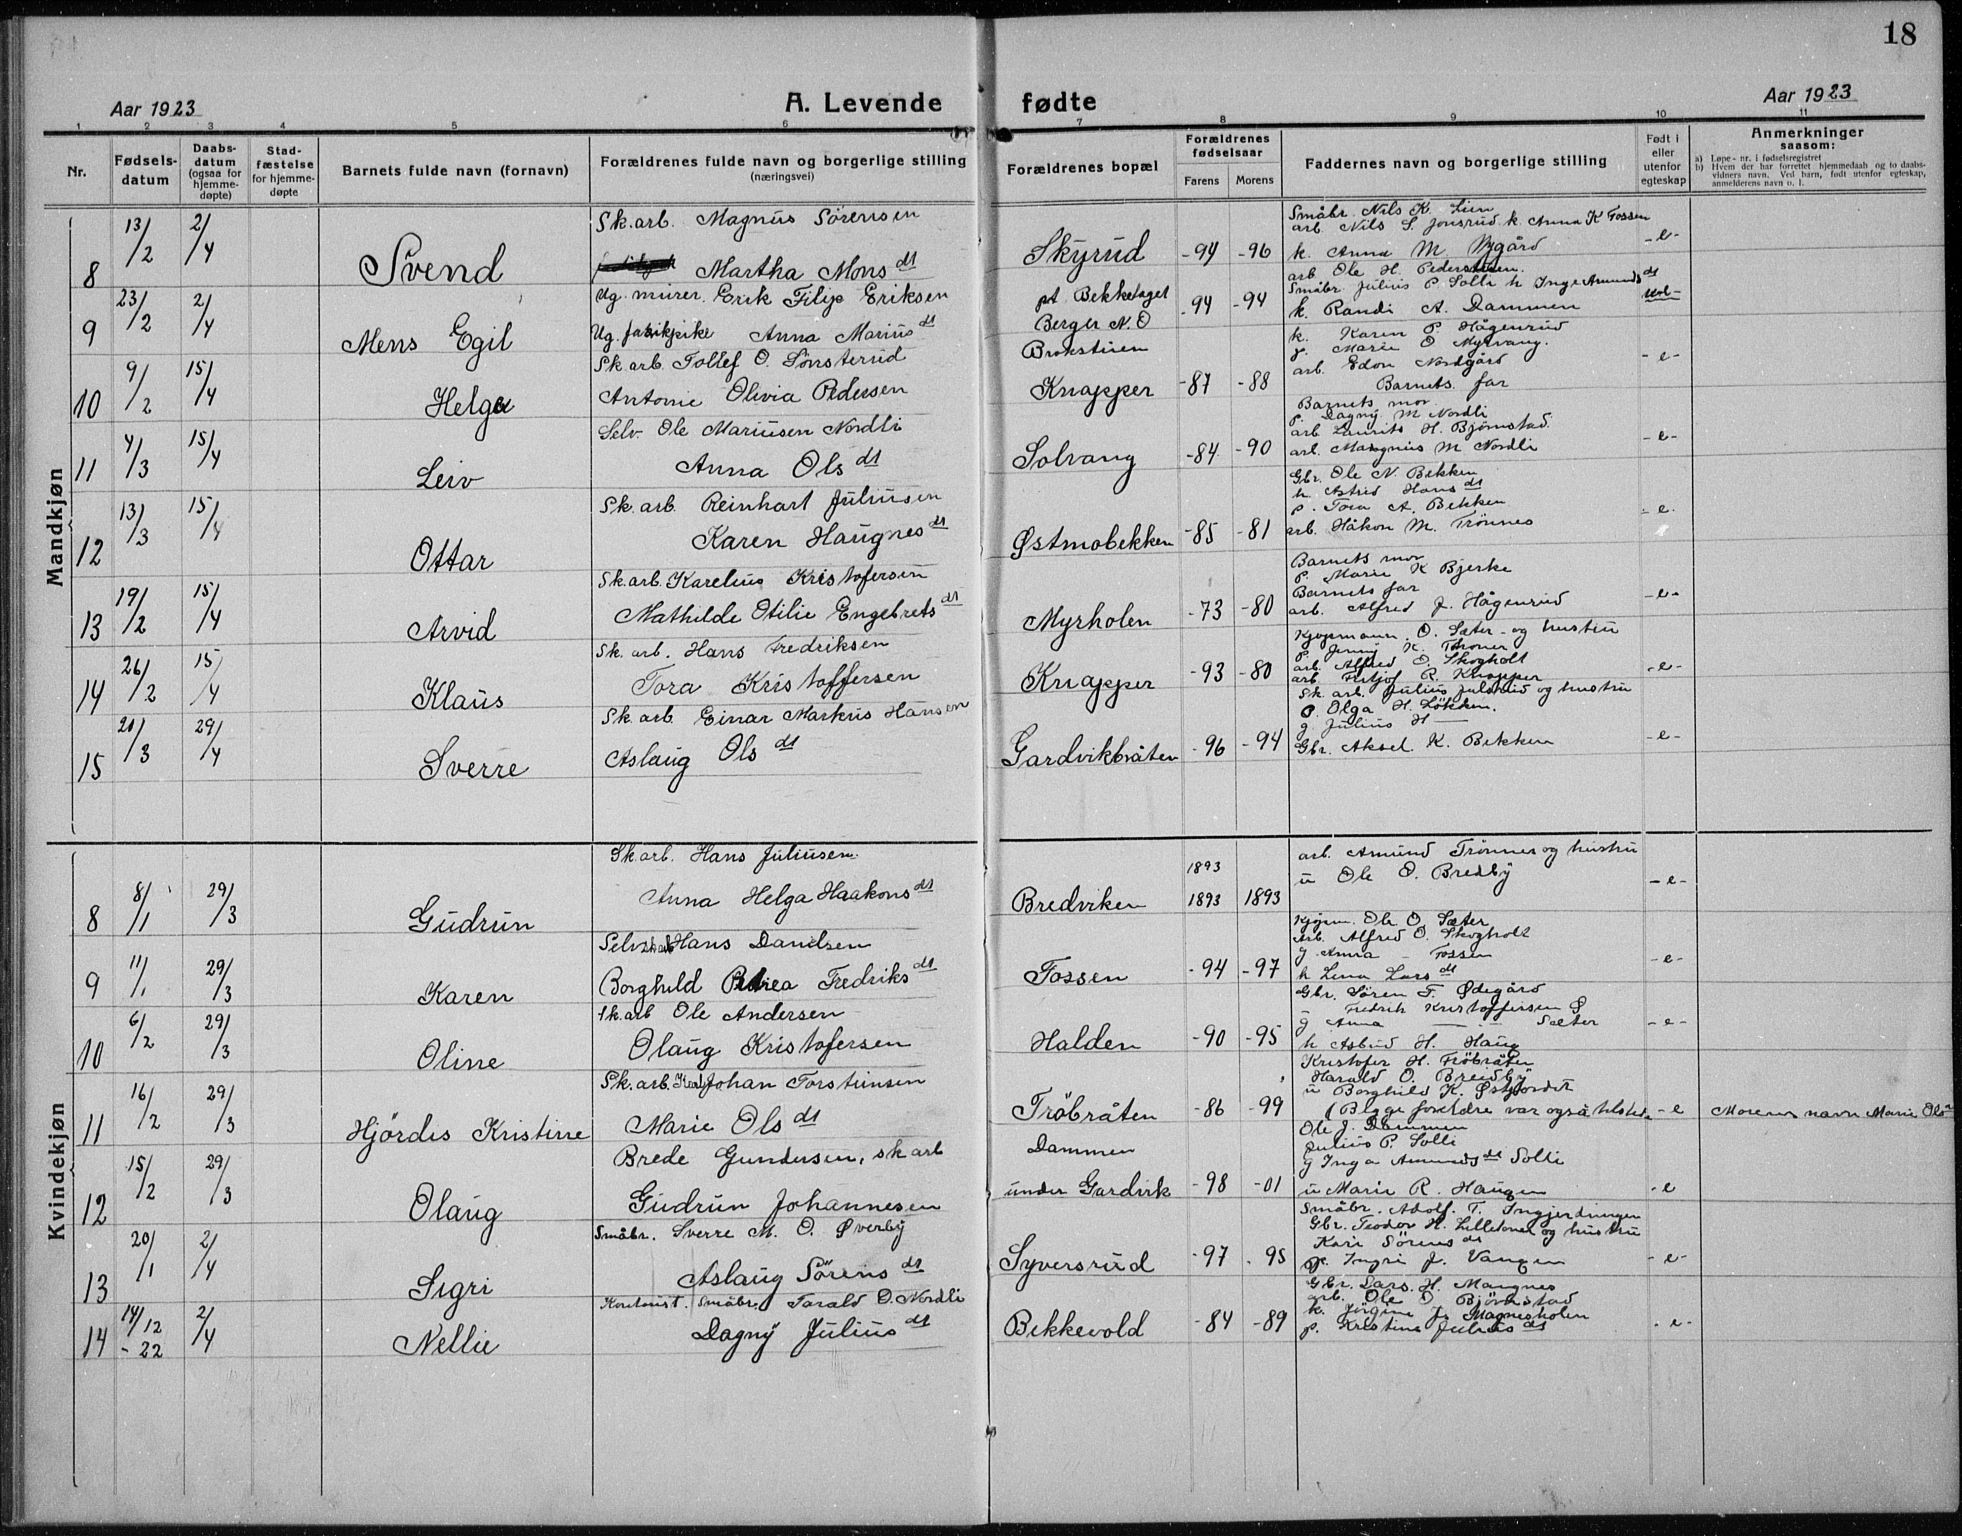 18
Aar 1923
A. Levende fødte
Aar 1923
1 2 3 4 5 6 7 8 9 10 11
Nr.
Fødselsdatum
Daabsdatum (ogsaa for hjemmedøpte)
Stadfæstelse for hjemmedøpte
Barnets fulde navn (fornavn)
Forældrenes fulde navn og borgerlige stilling
(næringsvei)
Forældrenes bopæl
Forældrenes fødselsaar
Farens Morens
Faddernes navn og borgerlige stilling
Født i eller utenfor egteskap
Anmerkninger
saasom:
a) Løpe-nr. i fødselsregistret
b) Hvem der har forrettet hjemmedaab og to daabsvidners navn. Ved barn, født utenfor egteskap, anmelderens navn o. l.
Mandkjøn
8 13/2 2/4 Svend
Sk. arb. Magnus Sørensen
Martha Monsdt
Skyrud -94 -96
Småbr. Nils K. Lien
arb. Nils S. Jonsrud k. Anna K Fossen
k. Anna M. Nygård
arb. Ole H. Pedersen.
-e-
9 23/2 2/4 Mens Egil
Ug. murer. Erik Filip Eriksen
Ug. fabrikpike Anna Mariusdt
pt. Bekkelaget
Berger N. O
Brokstuen
-94 -94
Småbr Julius P. Solli h Inge Amundsdt
k. Randi A. Dammen
k. Karen P. Hågenrud
g. Marie O Myrvang.
Ue-
10 9/2 15/4 Helge
Sk arb. Tollef O. Sønsterud
Antonie Olivia Pedersen
Knapper -87 -88
arb. Edon Nordgård
Barnets far
Barnets mor
p. Dagny M Nordli
-e-
11 4/3 15/4 Leiv
Selv. Ole Mariusen Nordli
Anna Olsdt
Solvang -84 -90
arb Laurits H. Bjørnstad.
arl. Magnus M Nordli
-e-
12 13/3 15/4 Ottar
Sk. arb. Reinhart Juliusen
Karen Haugnesdt
Østmobekken -85 -81
Gbr. Ole N. Bekken
h. Astrid Hansdt
p. Tora A. Bekken
arb. Håkon M. Trønnes
-e-
13 19/2 15/4 Arvid
Sk. arb. Karelius Kristofersen
Mathilde Otilie Engebretsdt
Myrholen -73 -80
Barnets mor
p. Marie K Bjerke
Barnets far
arb. Alfred J. Hågenrud
-e-
14 26/2 15/4 Klaus
Sk. arb. Hans Fredriksen
Tora Kristoffersen
Knapper -93 -80
Kjøpmann. O. Sæter - og hustru
p. Jenny K. Throner
arb. Alfred O. Skogholt
arb Fritjof R. Knapper
-e-
15 20/3 29/4 Sverre
Sk arb. Einar Markus Hansen
Aslaug Olsdt
Gardvikbråten -96 -94
Sk. arb. Julius Julsrud og hustru
p. Olga H. Løkken.
g Julius H —
Gbr. Aksel K. Bekken
-e-
Kvindekjøn
8 8/1 29/3 Gudrun
Sk arb. Hans Juliusen
Anna Helga Haakonsdt
Bredviken
1893
1893 1893
arb. Amund Trønnes og hustru
u Ole O. Bredby
-e-
9 11/1 29/3 Karen
Selv Hans Danilsen
Borghild Petrea Fredriksdt
Fossen -94 -97
Kjøpm. Ole O. Sæter
arb. Alfred O. Skogholt
g Anna — Fossen
h Lena Larsdt
-e-
10 6/2 29/3 Oline
Sk. arb Ole Andersen
Olaug Kristofersen
Halden -90 -95
Gbr. Søren F. Ødegård
Fredrik Kristoffersen
g Anna — Sæter
h Astrid H. Haug
-e-
11 16/2 29/3 Hjørdis Kristine
Sk. arb. Karl Johan Torsteinsen
Marie Olsdt
Trøbråten -86 -99
Kristofer H. Trøbråten
Harald O. Bredby
u Borghild K. Østfjordet
(Begge foreldre var også tilstede
-e
Morens navn Marie Olsdt
12 15/2 29/3 Olaug
Brede Gundersen, sk arb
Gudrun Johannesen
Dammen
under Gardvik -98 -01
Ole J. Dammen
Julius P. Solli
g Inga Amundsdt Solli
u Marie R. Haugen
-e
13 20/1 2/4 Sigri
Småbr. Sverre M. O. Øverby
Aslaug Sørensdt
Syversrud -97 -95
Småbr. Adolf. T. Ingjerdungen
Gbr. Teodor H. Lilletonen og hustru
Kari Sørensdt
p. Ingri J. Vangen
-e-
14 14/12 -22 2/4 Nellie
Kontorist. Småbr. Tarald O. Nordli
Dagny Juliusdt
Bekkevold -84 -89
Gbr. Lars H. Mangnes
arb. Ole O Bjørnstad
k. Jørgine J. Magnesholen
p. Kristine Juliusdt
-e-